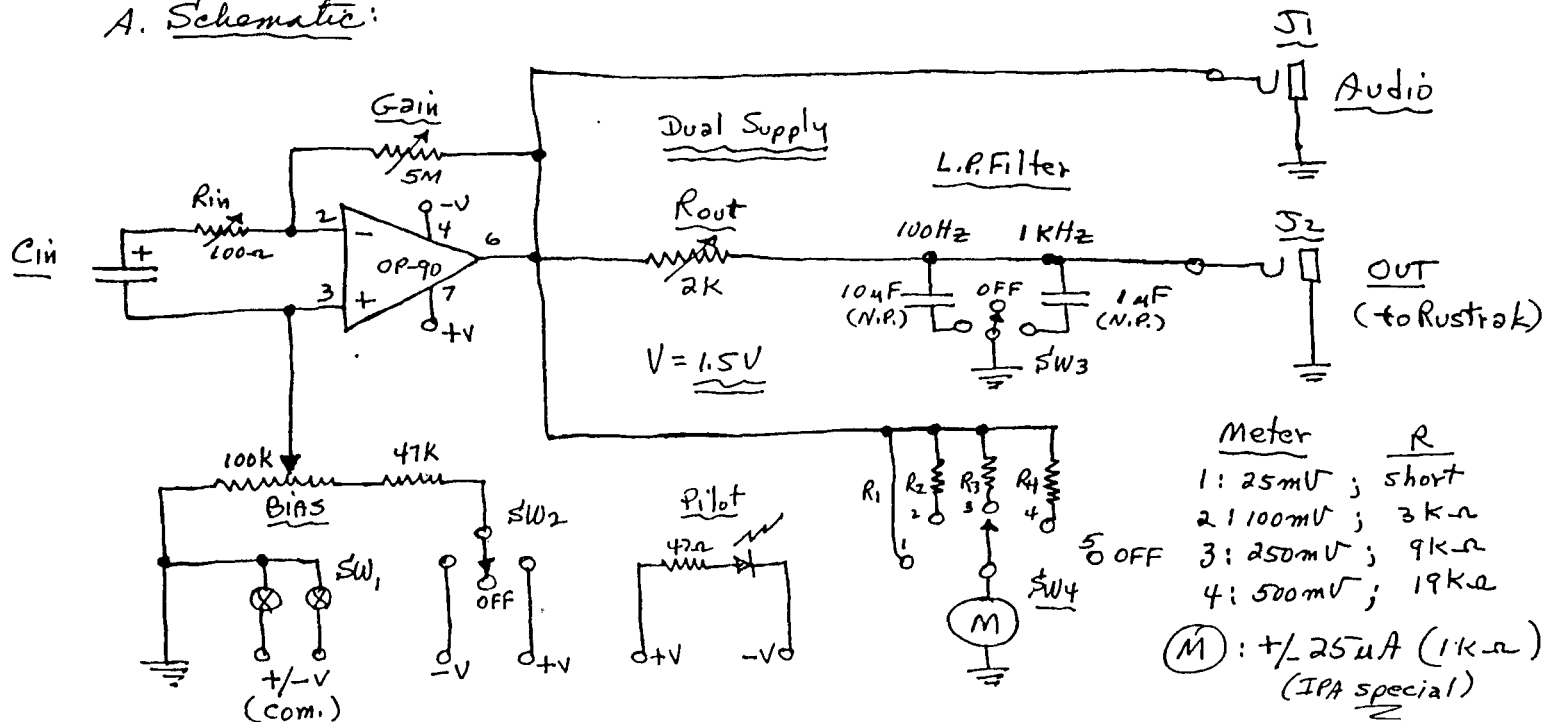 A. Schematic:
J1
Audio
Gain
5M
Dual Supply
L.P. Filter
Rin
100Ω
Cin
+
2
-
-V
4
OP-90
6
3
+
7
+V
Rout
2K
100Hz
1KHz
J2
OUT
(to Rustrak)
10µF
(N.P.)
OFF
1µF
(N.P.)
SW3
V = 1.5V
100K
47K
BIAS
SW2
OFF
-V
+V
SW1
+/-V
(com.)
Pilot
47Ω
+V
-V
R1
R2
R3
R4
1
2
3
4
5
OFF
SW4
M
Meter R
1: 25mV ; short
2: 100mV ; 3KΩ
3: 250mV ; 9KΩ
4: 500mV ; 19KΩ
M : +/- 25uA (1KΩ)
(IPA special)